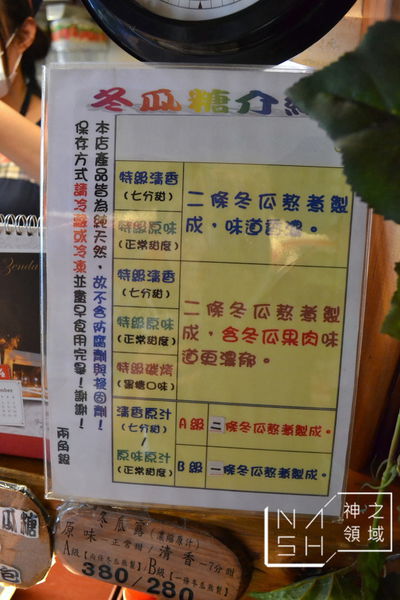 冬瓜糖介紹
本店產品皆為純天然，故不含防腐劑與擬固劑！
保存方式請冷藏或冷凍並盡早食用完畢！謝謝！
兩角銀
特級清香
(七分甜)
特級原味
(正常甜度)
二條冬瓜熬煮製
成，味道香濃。
特級清香
(七分甜)
特級原味
(正常甜度)
特級碳烤
(蜜糖口味)
二條冬瓜熬煮製
成，含冬瓜果肉味
道更濃郁。
清香原汁
(七分甜)
/
原味原汁
(正常甜度)
A級
二條冬瓜熬煮製成。
B級
一條冬瓜熬煮製成。
冬瓜露(濃縮原汁)
原味—正常甜/清香—7分甜
A級【兩條冬瓜熬製】、B級【一條冬瓜熬製】
380/280
瓜糖
包
Zenda
NASH
神之
領域